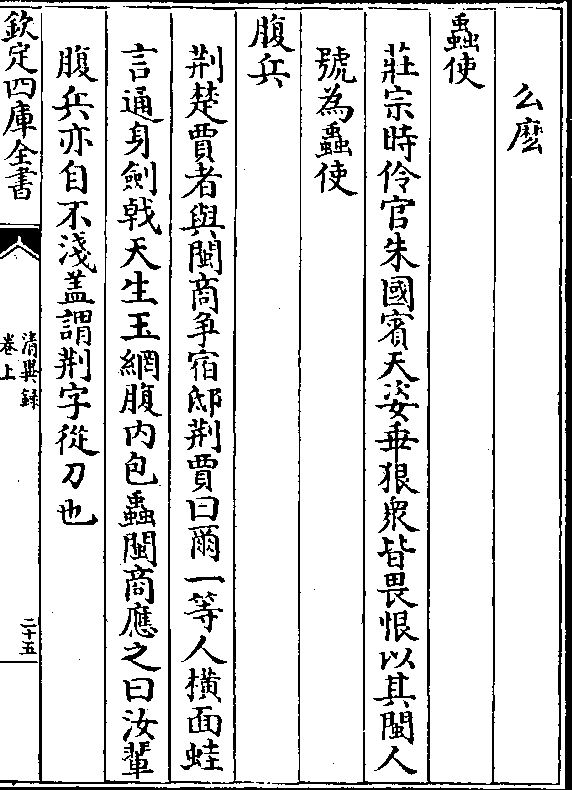 么麽
蟲使
莊宗時伶官朱國賓天姿乖狠衆皆畏恨以其閩人
號為蟲使
腹兵
荆楚賈者與閩商争宿邸荆賈曰爾一等人橫面蛙
言通身劍戟天生玉網腹内包蟲閩商應之曰汝輩
腹兵亦自不淺盖謂荆字從刀也
欽定四庫全書
清異録
卷上
二十五